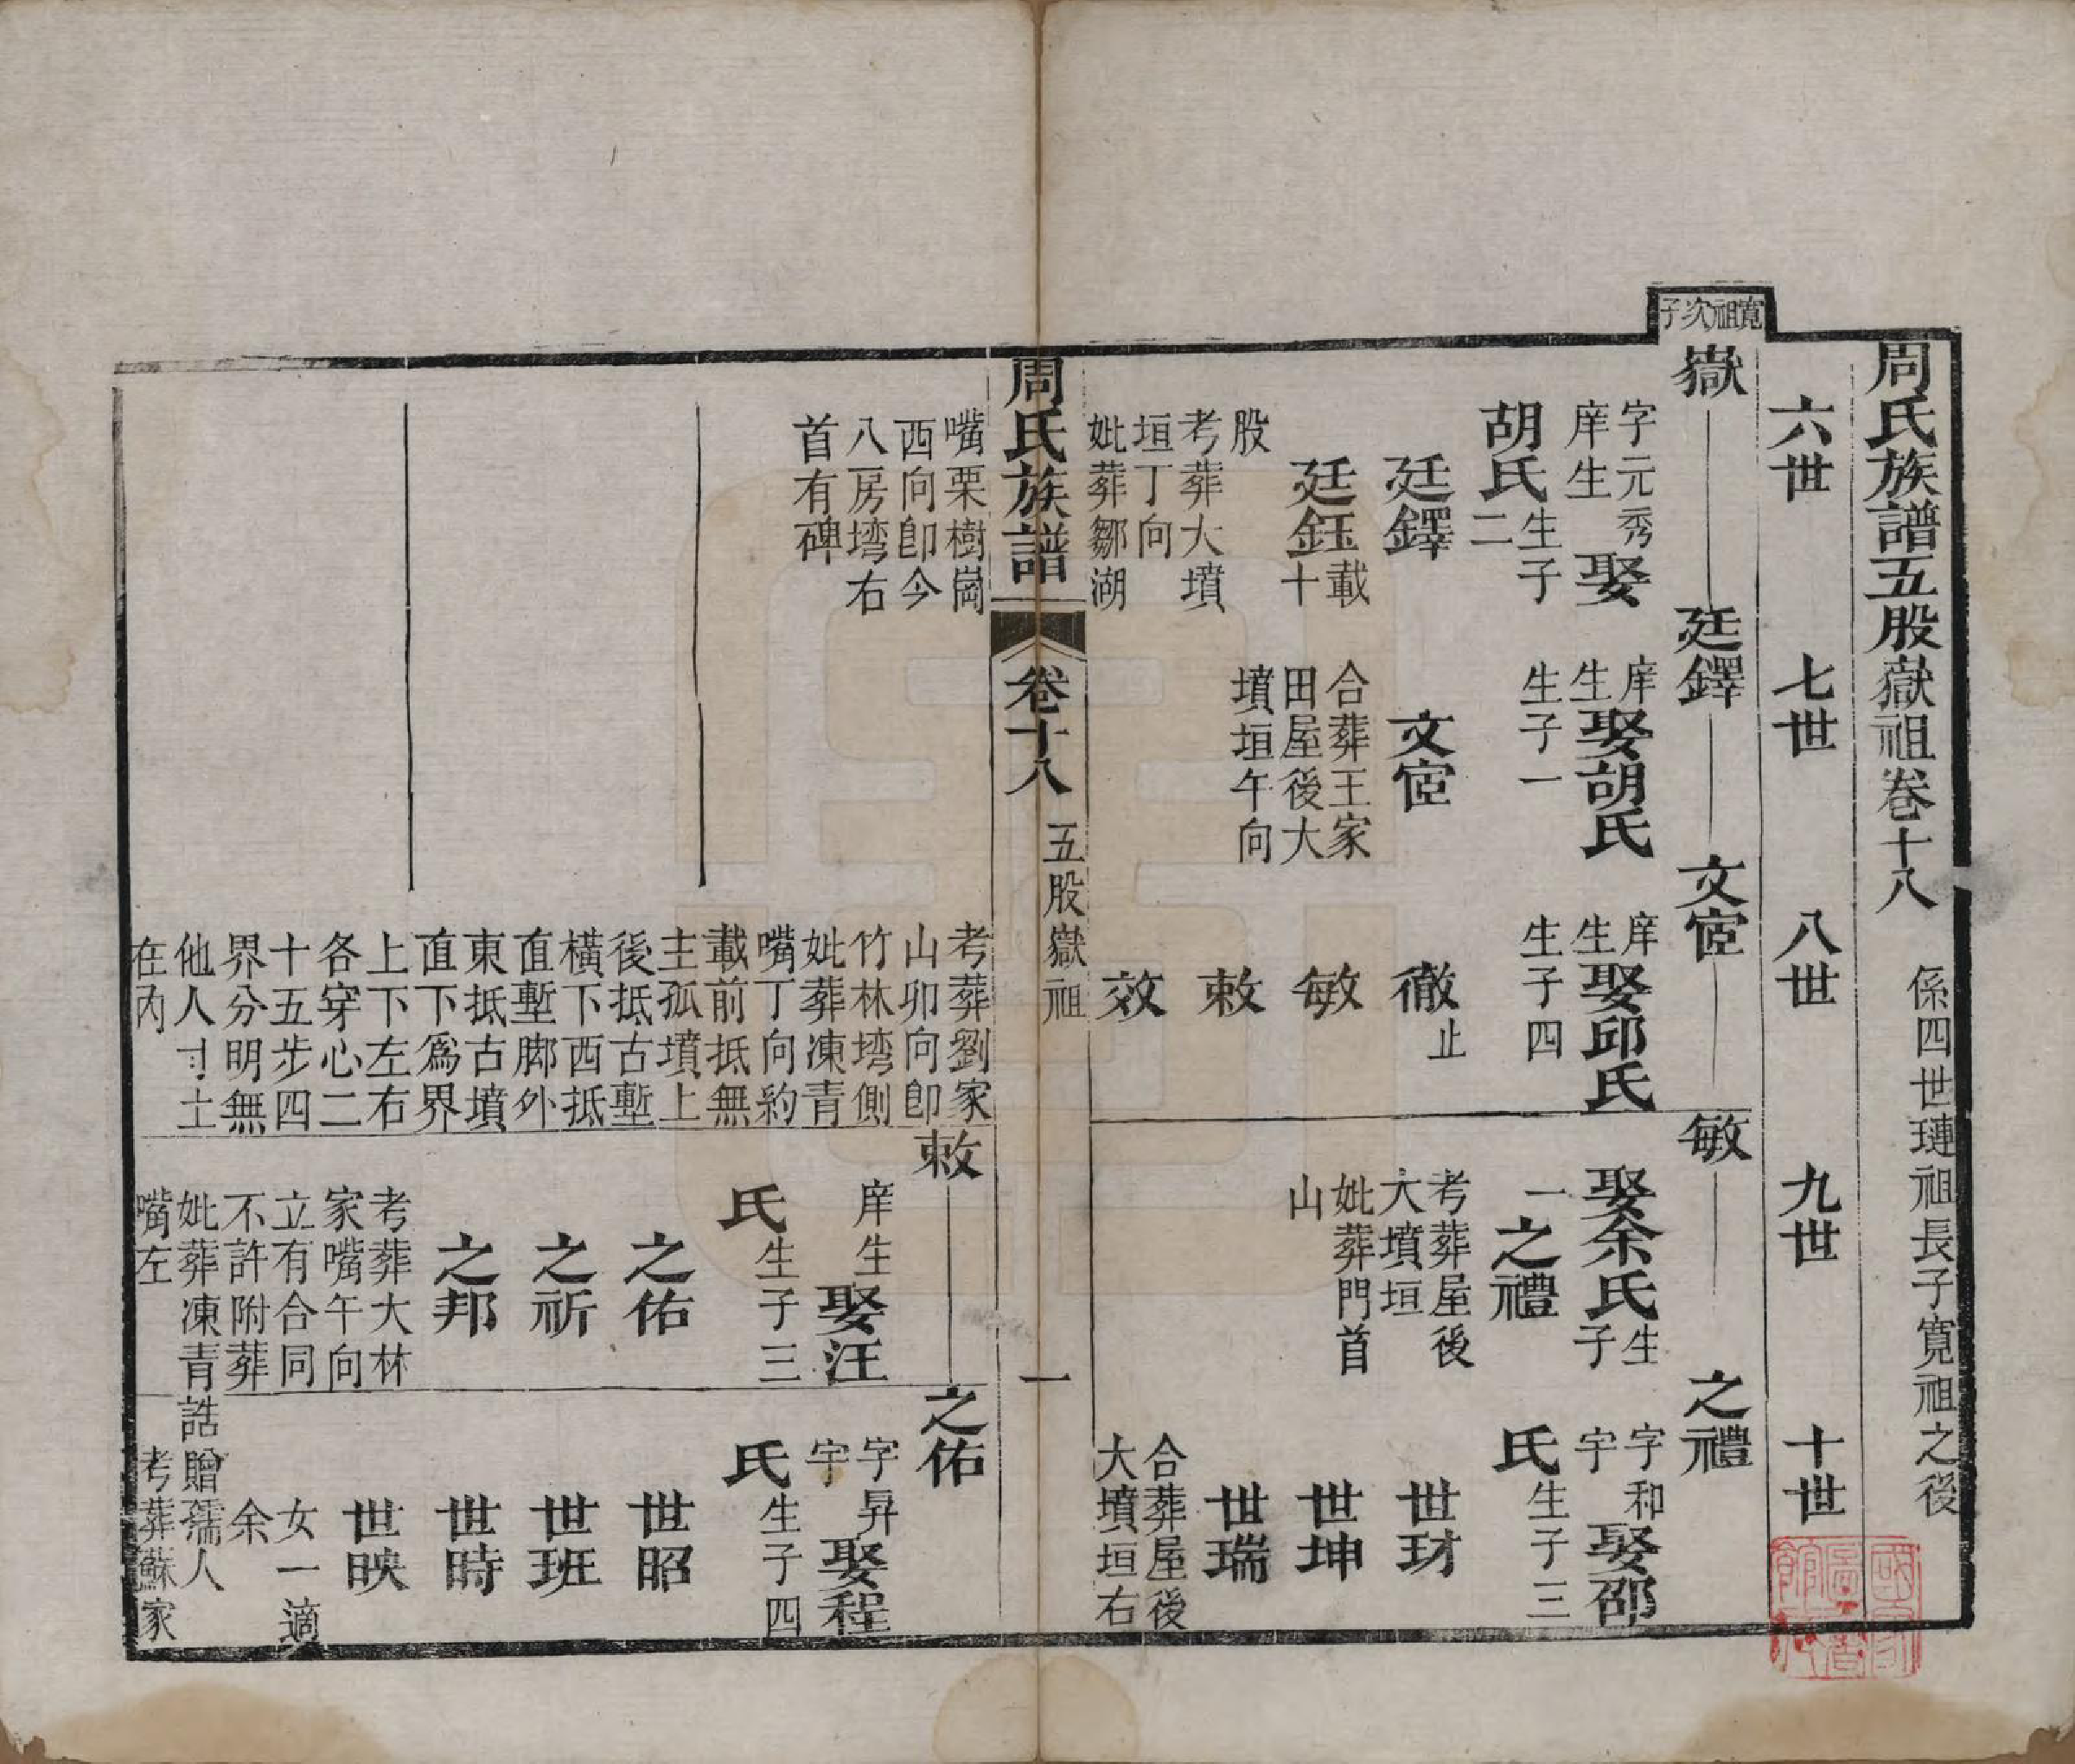 周氏族譜五股嶽祖卷十八 係四世璉祖長子寛祖之後
六世 七世 八世 九世 十世
寛祖次子
嶽 廷鐸 文宧 敏 之禮
字元秀
庠生 娶
胡氏生子
二
廷鐸
廷鈺載十
股
考葬大墳
垣丁向
妣葬鄒湖
嘴栗樹崗
西向卽今
八房塆右
首有碑
庠
生娶胡氏
生子一
文宧
合葬王家
田屋後大
墳垣午向
庠
生娶邱氏
生子四
徹止
敏
敕
效
考葬劉家
山卯向卽
竹林塆側
妣葬凍青
嘴丁向約
載前抵無
主孤墳上
後抵古塹
橫下西抵
直塹脚外
東抵古墳
直下爲界
上下左右
各穿心二
十五步四
界分明無
他人寸土
在內
娶余氏生子
一之禮
考葬屋後
大墳垣
妣葬門首
山
字和
宇 娶邵
氏生子三
世玥
世坤
世瑞
合葬屋後
大墳垣右
敕 之佑
庠生 娶汪
氏生子三
之佑
之祈
之邦
考葬大林
家嘴午向
立有合同
不許附葬
妣葬凍青
嘴左
字昇
宇 娶程
氏生子四
世昭
世班
世時
世映
女一適
余
誥贈孺人
考葬蘇家
周氏族譜 卷十八 五股嶽祖 一